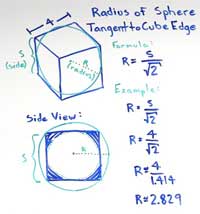 Radius of Sphere
Tangent to Cube Edge
4
S
(side)
R
(radius)
Formula:
R = S/√2
Example:
R = S/√2
R = 4/√2
R = 4/1.414
R = 2.829
Side View:
S
R